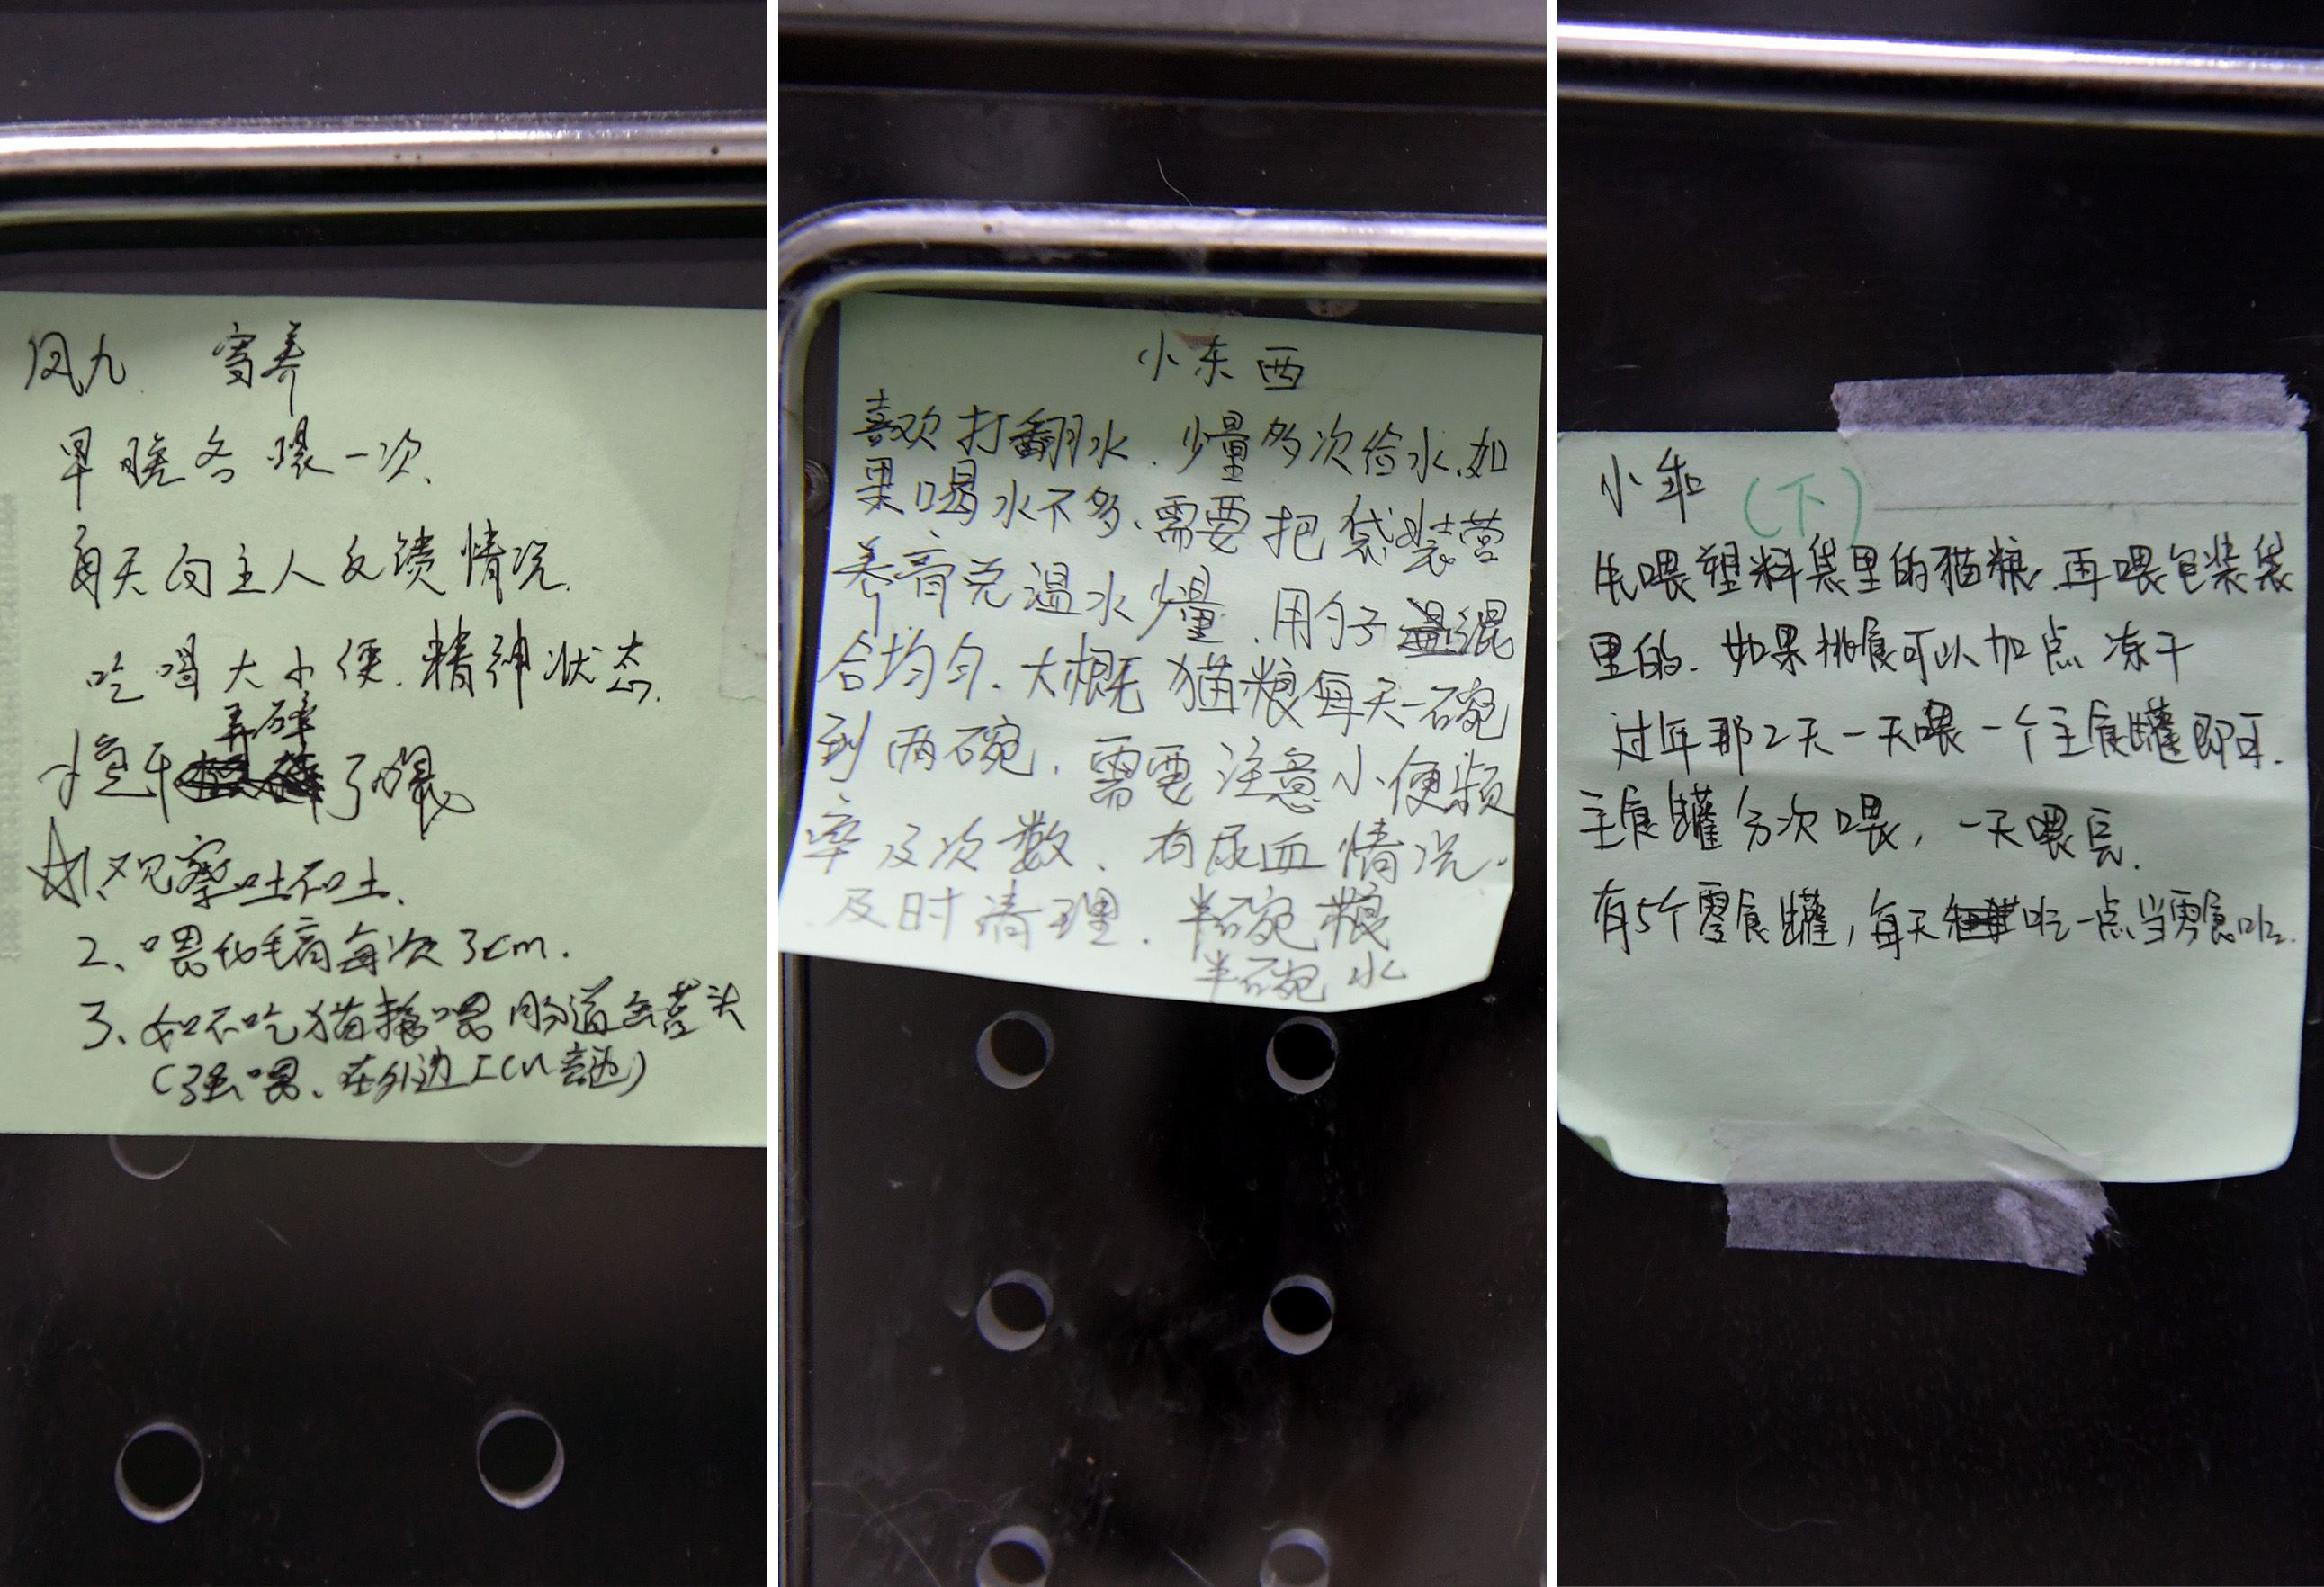 凤九 寄养
早晚各喂一次.
每天向主人反馈情况.
吃喝大小便.精神状态.
弄碎
了喂
☆1、观察吐不吐.
2、喂化毛膏每次3cm.
3、如不吃猫抢喂 肠道处方罐头
(强喂、在外边ICU旁边)
小东西
喜欢打翻水.少量多次给水.如
果喝水不多、需要把袋装营
养膏兑温水少量.用勺子混
合均匀.大概猫粮每天一碗
到两碗.需要注意小便频
率及次数、有尿血情况.
及时清理.半碗粮
半碗水
小乖 (下)
先喂塑料袋里的猫粮.再喂包装袋
里的.如果挑食可以加点冻干
过年那2天一天喂一个主食罐即可.
主食罐分次喂,一天喂完.
有5个零食罐,每天吃一点当零食吃.